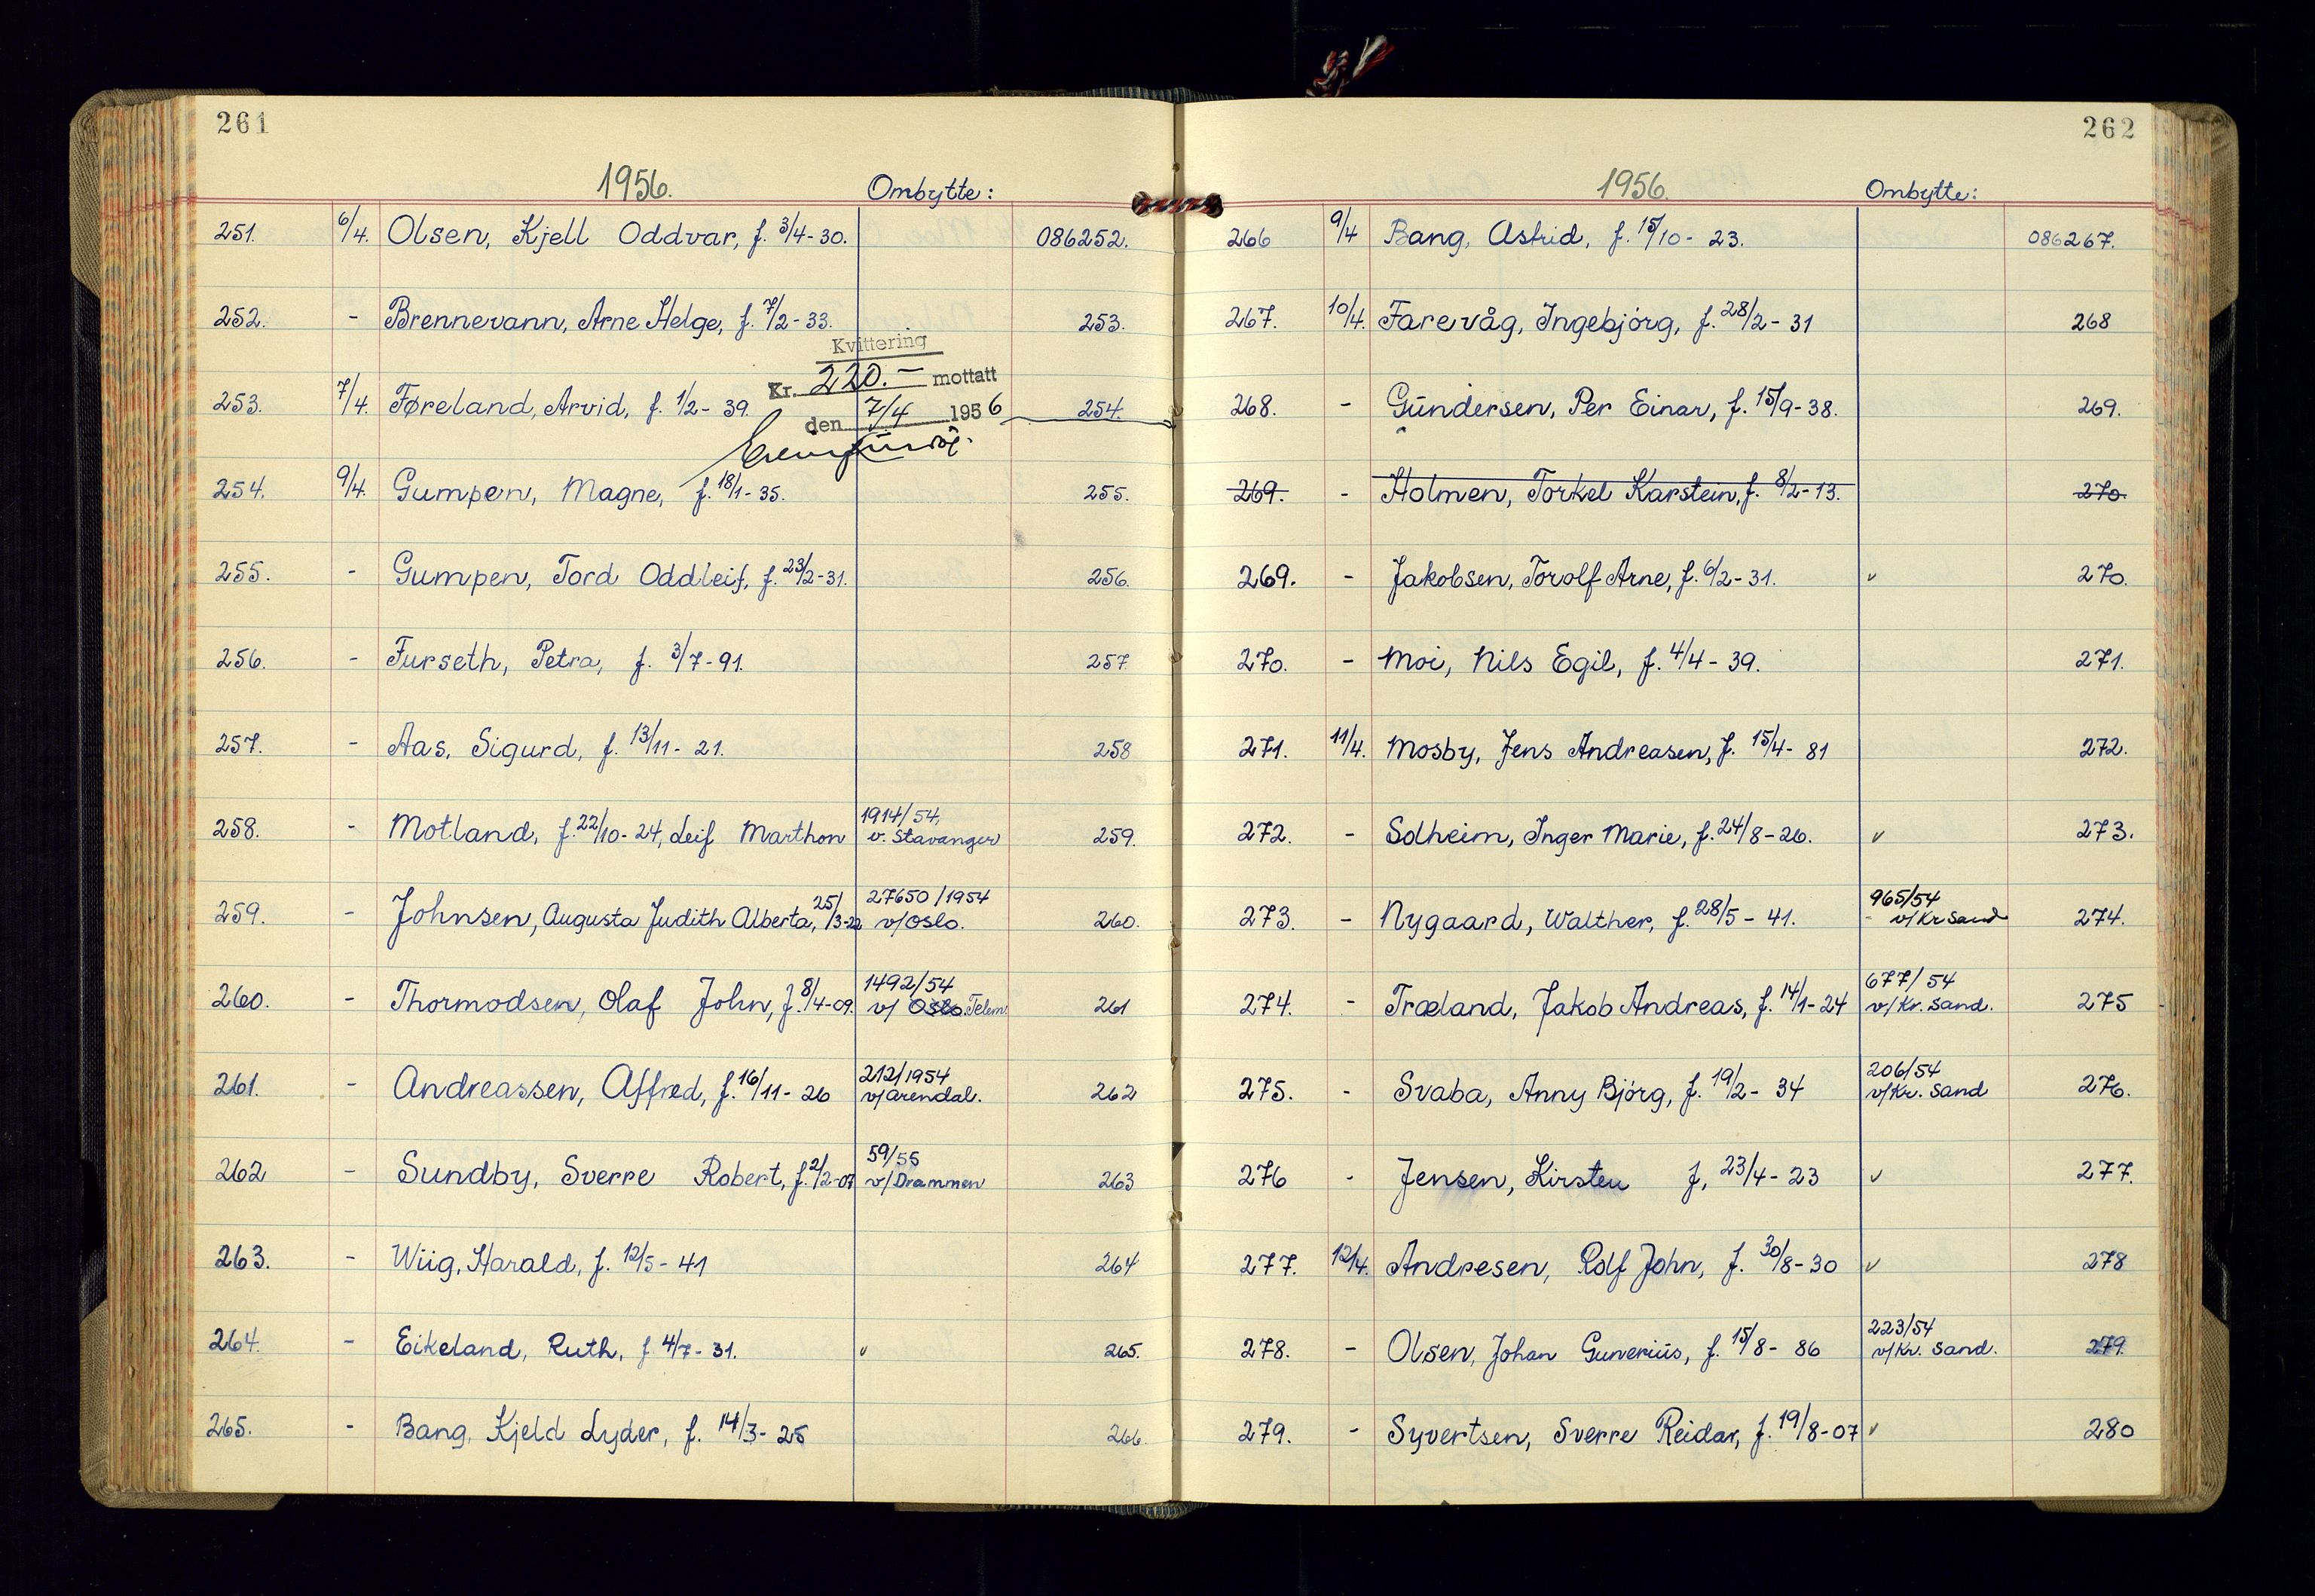 261
1956.
Ombytte:
251. 6/4. Olsen, Kjell Oddvar, f. 3/4-30. 086252.
252. - Brennevann, Arne Helge, f. 7/2-33. 253.
Kvittering
Kr. 220.- mottatt
den 7/4 1956
253. 7/4. Føreland, Arvid, f. 1/2-39. 254.
254. 9/4. Gumpen, Magne, f. 18/1-35. 255.
255. - Gumpen, Tord Oddleif, f. 23/2-31. 256.
256. - Furseth, Petra, f. 3/7-91. 257
257. - Aas, Sigurd, f. 13/11-21. 258
258. - Motland, f. 22/10-24, Leif Marthon 1914/54, v. Stavanger 259.
259. - Johnsen, Augusta Judith Alberta, 25/3-22 27650/1954 v/Oslo. 260.
260. - Thormodsen, Olaf John, f. 8/4-09. 1492/54 v/ Oslo. Telem. 261
261. - Andreassen, Alfred, f. 16/11-26 212/1954 v/Arendal. 262
262 - Sundby, Sverre Robert, f. 2/2-07 59/55 v/Drammen 263
263. - Wiig, Harald, f. 12/5-41 264
264. - Eikeland, Ruth, f. 4/7-31. v 265.
265. - Bang, Kjeld Lyder, f. 14/3-25 266.
262
1956.
Ombytte:
266 9/4 Bang, Astrid, f. 15/10-23. 086267.
267. 10/4. Farevåg, Ingebjörg, f. 28/2-31 268
268. - Gundersen, Per Einar, f. 15/9-38. 269.
269. - Holmen, Torkel Karstein, f. 8/2-13. 270.
269. - Jakobsen, Torolf Arne, f. 6/2-31. v 270.
270. - Moi, Nils Egil, f. 4/4-39. 271.
271. 11/4. Mosby, Jens Andreasen, f. 15/4-81 272.
272. - Solheim, Inger Marie, f. 24/8-26. v 273.
273. - Nygaard, Walther, f. 28/5-41. 965/54 v/Kr Sand 274.
274. - Træland, Jakob Andreas, f. 14/1-24 677/54 v/Kr. Sand. 275
275. - Svaba, Anny Bjôrg, f. 19/2-34 206/54 v/Kr. Sand 276.
276 - Jensen, Kirsten f, 23/4-23 v 277.
277. 12/4. Andresen, Rolf John, f. 30/8-30 v 278
278. - Olsen, Johan Gunerius, f. 15/8-86 223/54 v/Kr. Sand. 279.
279. - Syvertsen, Sverre Reidar, f. 19/8-07 v 280